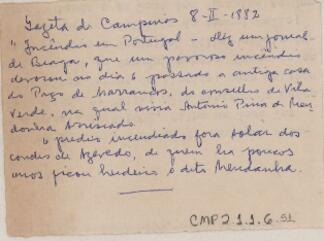 Gazeta de Campinas 8-II-1882
"Incendio em Portugal - diz um jornal
de Braga, que um pavoroso incendio
devorou no dia 6 passado a antiga casa
do Paço de Marrancos, do conselho de Vila
Verde, na qual vivia Antonio Pinna de Men
donha Arriscado.
O predio incendiado fora solar dos
condes de Azevedo, de quem ha poucos
anos ficou herdeiro o dito Mendanha.
CMP2.1.1.6.51